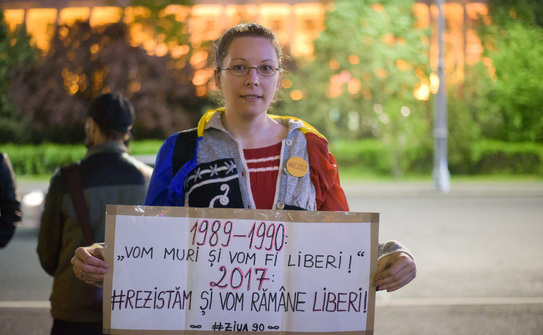 REZIST
1989-1990:
„VOM MURI ȘI VOM FI LIBERI!"
2017:
#REZISTĂM ȘI VOM RĂMÂNE LIBERI!
∞ #ZIUA 90 ∞